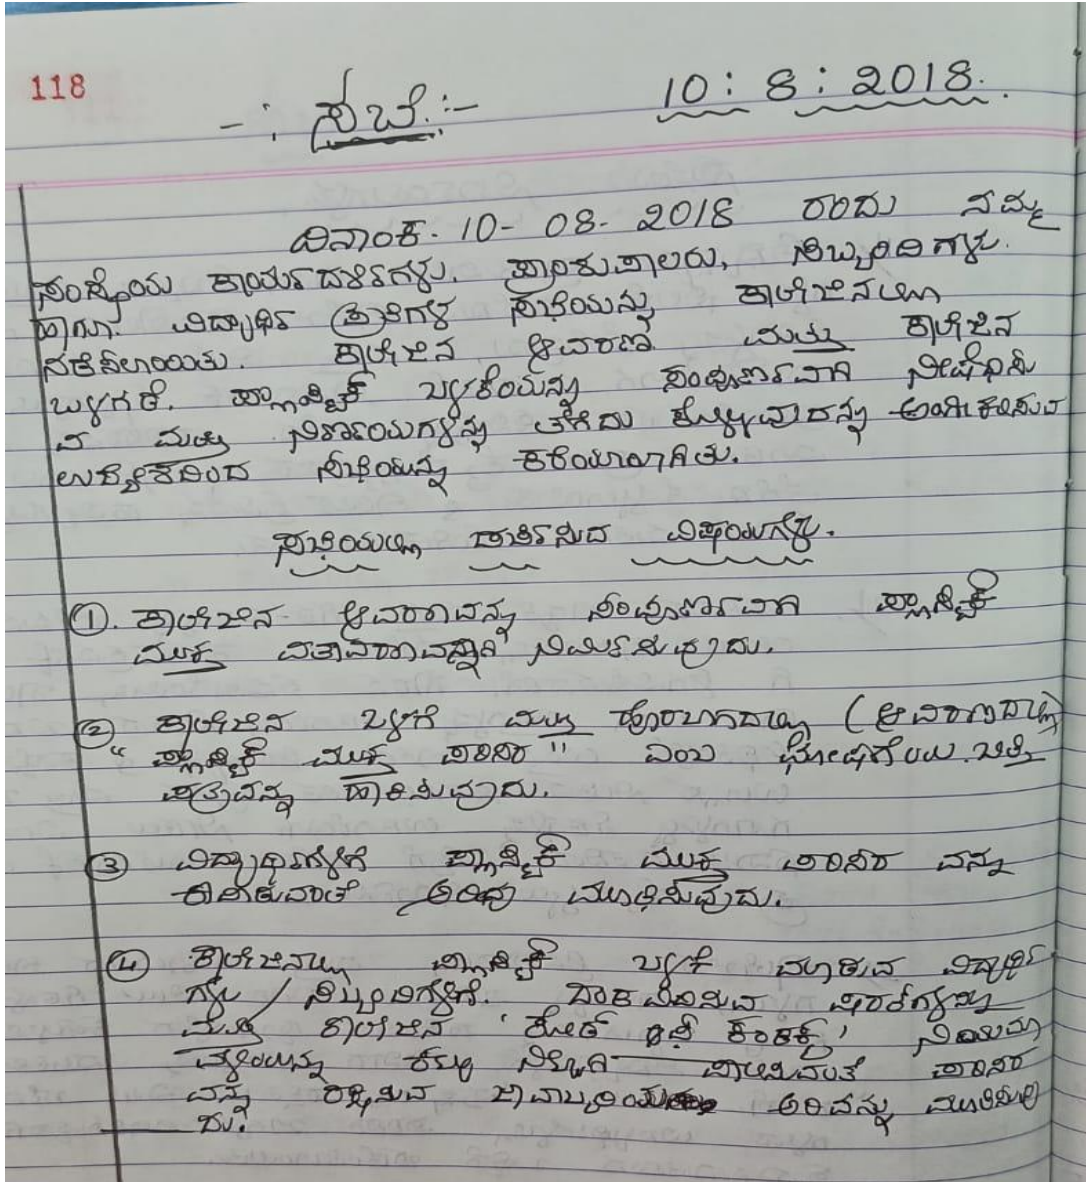 118
-: ಸಭೆ :-
10 : 8 : 2018.
ದಿನಾಂಕ. 10- 08- 2018 ರಂದು ನಮ್ಮ
ಸಂಸ್ಥೆಯ ಕಾರ್ಯದರ್ಶಿಗಳು, ಪ್ರಾಂಶುಪಾಲರು, ಸಿಬ್ಬಂದಿಗಳು.
ಹಾಗೂ ವಿದ್ಯಾರ್ಥಿ ಸಭೆಯನ್ನು ಕಾಲೇಜಿನಲ್ಲಿ
ನಡೆಸಲಾಯಿತು. ಕಾಲೇಜಿನ ಆವರಣ ಮತ್ತು ಕಾಲೇಜಿನ
ಒಳಗಡೆ. ಪ್ಲಾಸ್ಟಿಕ್ ಬಳಕೆಯನ್ನು ಸಂಪೂರ್ಣವಾಗಿ ನೀಷೇಧಿಸು
ವ ಮತ್ತು ನಿರ್ಣಾಯಗಳನ್ನು ತೆಗೆದು ಕೊಳ್ಳುವುದನ್ನು ಅಂಗೀಕರಿಸುವ
ಉದ್ದೇಶದಿಂದ ಸಭೆಯನ್ನು ಕರೆಯಲಾಗಿತು.
ಸಭೆಯಲ್ಲಿ ಚರ್ಚಿಸಿದ ವಿಷಯಗಳು.
1. ಕಾಲೇಜಿನ ಆವರಣವನ್ನು ಸಂಪೂರ್ಣವಾಗಿ ಪ್ಲಾಸ್ಟಿಕ್
ಮುಕ್ತ ವಾತಾವರಣವನ್ನಾಗಿ ನಿರ್ಮಿಸುವುದು.
2 ಕಾಲೇಜಿನ ಒಳಗೆ ಮತ್ತು ಹೊರಭಾಗದಲ್ಲಿ (ಆವರಣದಲ್ಲಿ)
" ಪ್ಲಾಸ್ಟಿಕ್ ಮುಕ್ತ ಪರಿಸರ " ಎಂಬ ಘೋಷಣೆಯ ಭಿತ್ತಿ
ಪತ್ರವನ್ನು ಹಾಕಿಸುವುದು.
3 ವಿದ್ಯಾರ್ಥಿಗಳಿಗೆ ಪ್ಲಾಸ್ಟಿಕ್ ಮುಕ್ತ ಪರಿಸರ ವನ್ನು
ಕಾಪಾಡುವಂತೆ ಅರಿವು ಮೂಡಿಸುವುದು.
4 ಕಾಲೇಜಿನಲ್ಲಿ ಪ್ಲಾಸ್ಟಿಕ್ ಬಳಕೆ ಮಾಡುವ ವಿದ್ಯಾರ್ಥಿ
ಗಳು / ಸಿಬ್ಬಂದಿಗಳಿಗೆ. ದಂಡ ವಿಧಿಸುವ ಷರತ್ತುಗಳನ್ನು
ಮತ್ತು ಕಾಲೇಜಿನ ' ಕೋಡ್ ಆಫ್ ಕಂಡಕ್ಟ್ ' ನಿಯಮಾ
ವಳಿಯನ್ನು ಕಟ್ಟು ನಿಟ್ಟಾಗಿ ಪಾಲಿಸುವಂತೆ ಪರಿಸರ
ವನ್ನು ರಕ್ಷಿಸುವ ಜವಾಬ್ದಾರಿಯ ಅರಿವನ್ನು ಮೂಡಿಸುವು
ದು.